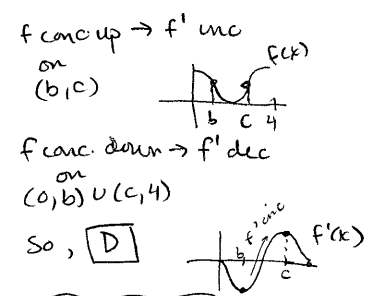 f conc up → f' inc
on
(b,c)
f(x)
b c 4
f conc. down → f' dec
on
(0,b) U (c,4)
So, D
b f' inc
f'(x)
c